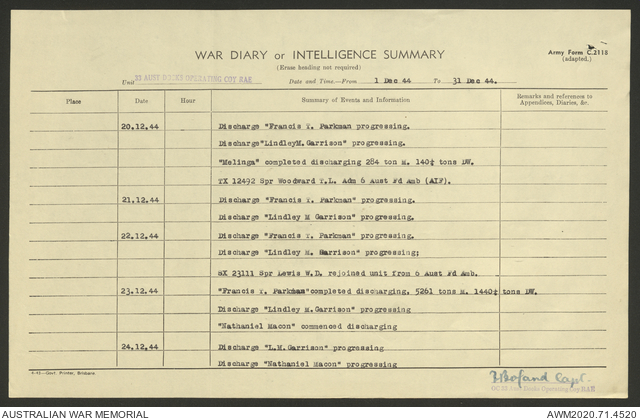 WAR DIARY or INTELLIGENCE SUMMARY
(Erase heading not required)
Army Form C.2118
(adapted.)
Unit 33 AUST DOCKS OPERATING COY RAE Date and Time.—From 1 Dec 44 To 31 Dec 44.
Place Date Hour Summary of Events and Information Remarks and references to Appendices, Diaries, &c.
20.12.44 Discharge "Francis T. Parkman progressing.
Discharge"LindleyM.Garrison" progressing.
"Melinga" completed discharging 284 ton M. 140¼ tons DW.
TX 12492 Spr Woodward T.L. Adm 6 Aust Fd Amb (AIF).
21.12.44 Discharge "Francis T. Parkman" progressing.
Discharge "Lindley M Garrison" progressing.
22.12.44 Discharge "Francis T. Parkman" progressing.
Discharge "Lindley M. Garrison" progressing;
SX 23111 Spr Lewis W.D. rejoined unit from 6 Aust Fd Amb.
23.12.44 "Francis T. Parkman"completed discharging, 5261 tons M. 1440¼ tons DW.
Discharge "Lindley M.Garrison" progressing
"Nathaniel Macon" commenced discharging
24.12.44 Discharge "L.M. Garrison" progressing
Discharge "Nathaniel Macon" progressing
4-43—Govt. Printer, Brisbane
Capt.
OC 33 Aust Docks Operating Coy RAE
AUSTRALIAN WAR MEMORIAL AWM2020.71.4520